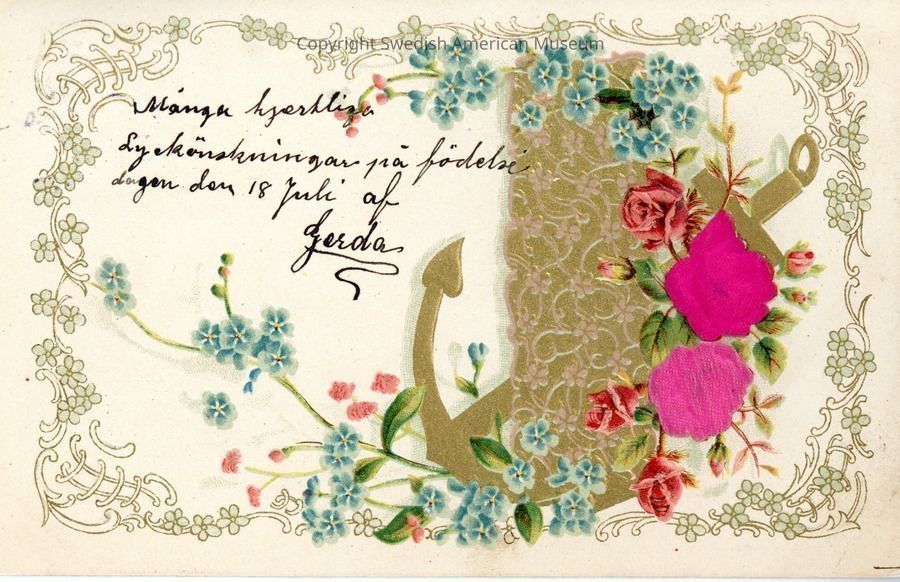 Copyright Swedish American Museum
Många hjertliga
Lyckönskningar på födelse
dagen den 18 Juli af
Gerda